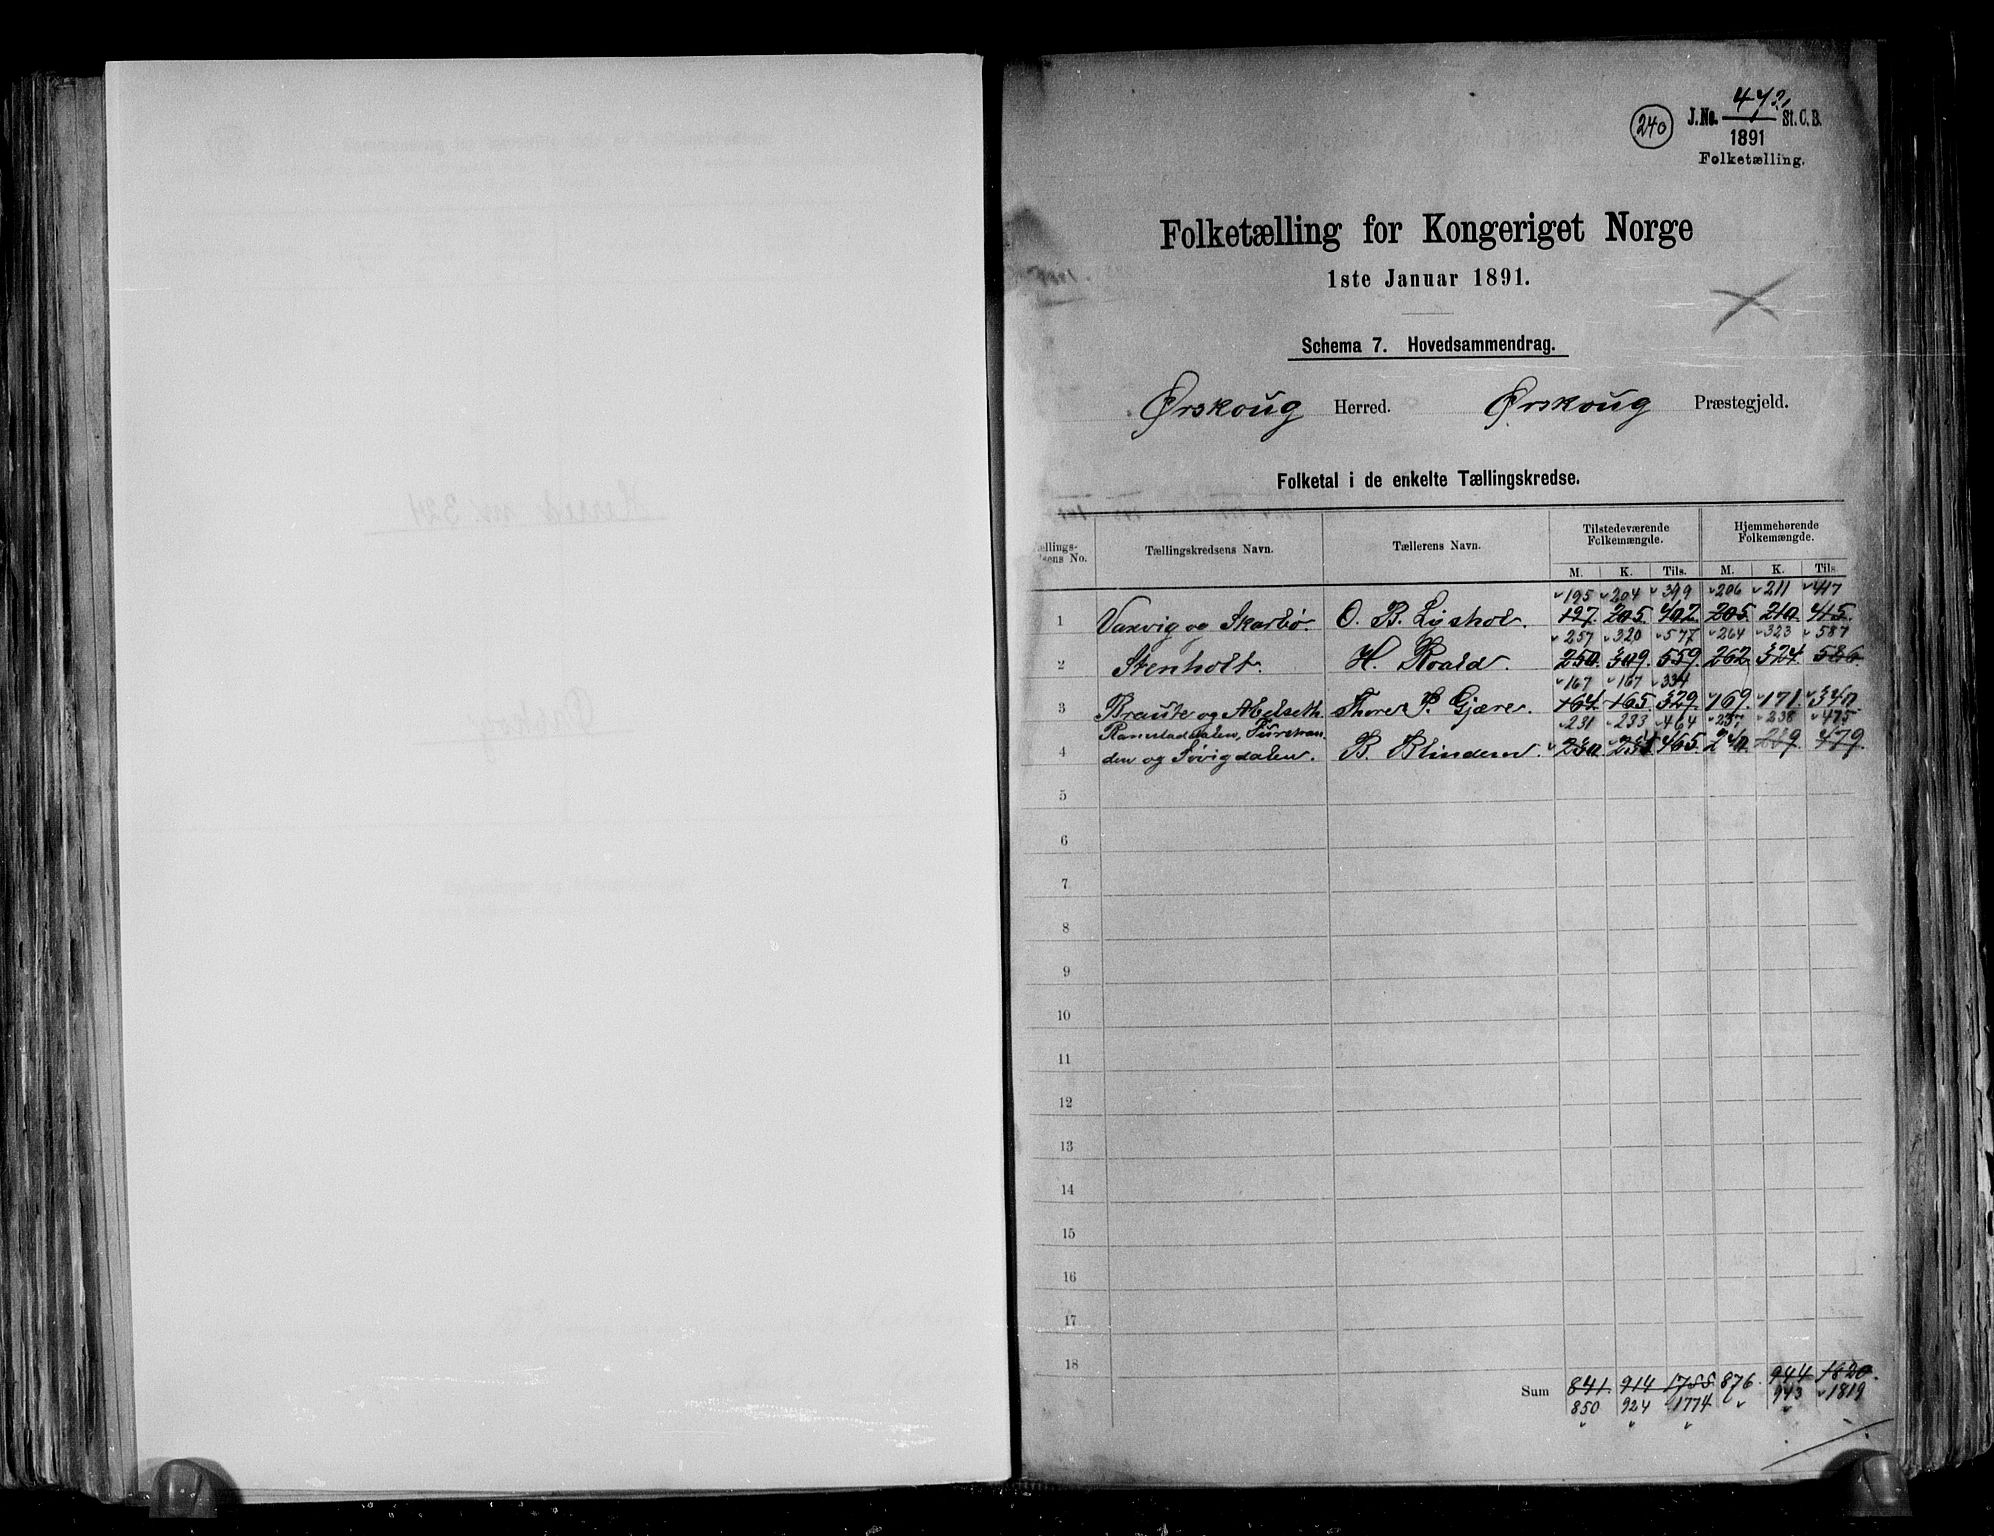 240
J.No. 472 St. C. B.
1891
Folketælling.
Folketælling for Kongeriget Norge
1ste Januar 1891.
Schema 7. Hovedsammendrag.
Ørskoug Herred. Ørskoug Præstegjeld.
Folketal i de enkelte Tællingskredse.
Tællingskredsens Navn. Tællerens Navn. Tilstedeværende Folkemængde. Hjemmehørende Folkemængde.
M. K. Tils. M. K. Tils.
195 204 399 206 211 417
1 Vaxvig og Skarbø. O. B. Lyshol. 197. 205. 402. 205. 210. 415.
257 320 577 264 323 587
2 Stenholt. H. Roald. 250. 309. 559. 262. 324. 586
167 167 334
3 Braute og Abelseth. Thore P. Gjære. 164. 165. 329. 169. 171. 340.
231 233 464 237 238 475
4 den og Søvigdalen. B. Blindem. 230. 465. 240. 239 479.
5
6
7
8
9
10
11
12
13
14
15
16
17
18
Sum 841. 914 1755 876. 944 1820.
850 924 1774 943 1819